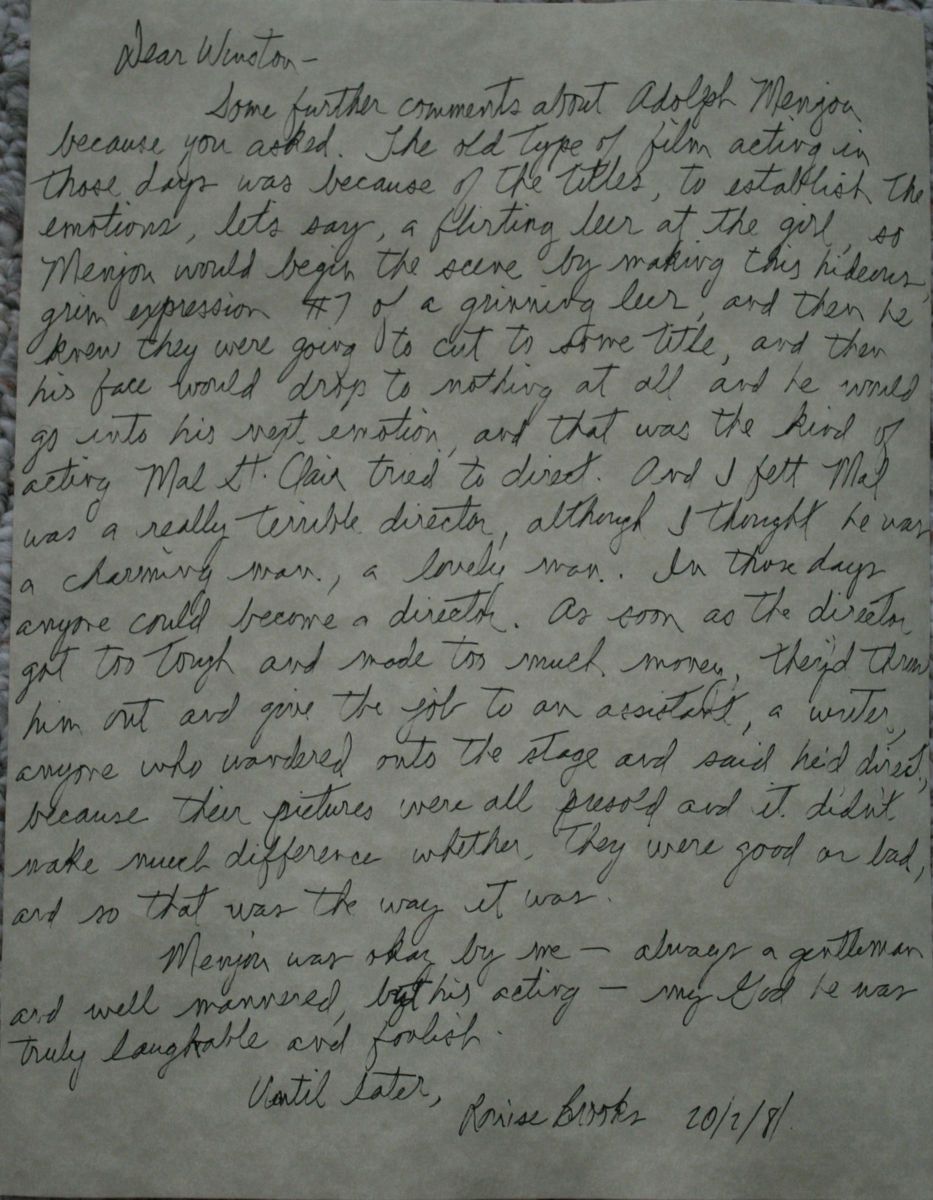 Dear Winston –
Some further comments about Adolph Menjou
because you asked. The old type of film acting in
those days was because of the titles, to establish the
emotions, lets say, a flirting leer at the girl, so
Menjou would begin the scene by making this hideous,
grim expression #7 of a grinning leer, and then he
knew they were going to cut to some title, and then
his face would drop to nothing at all and he would
go into his next emotion, and that was the kind of
acting Mal St. Clair tried to direct. And I felt Mal
was a really terrible director, although I thought he was
a charming man, a lovely man. In those days
anyone could become a director. As soon as the director
got too tough and made too much money, they'd throw
him out and give the job to an assistant, a writer,
anyone who wandered onto the stage and said he'd direct,
because their pictures were all presold and it didn't
make much difference whether they were good or bad,
and so that was the way it was.
Menjou was okay by me – always a gentleman
and well mannered, but his acting – my God he was
truly laughable and foolish.
Until later,
Louise Brooks 20/2/81